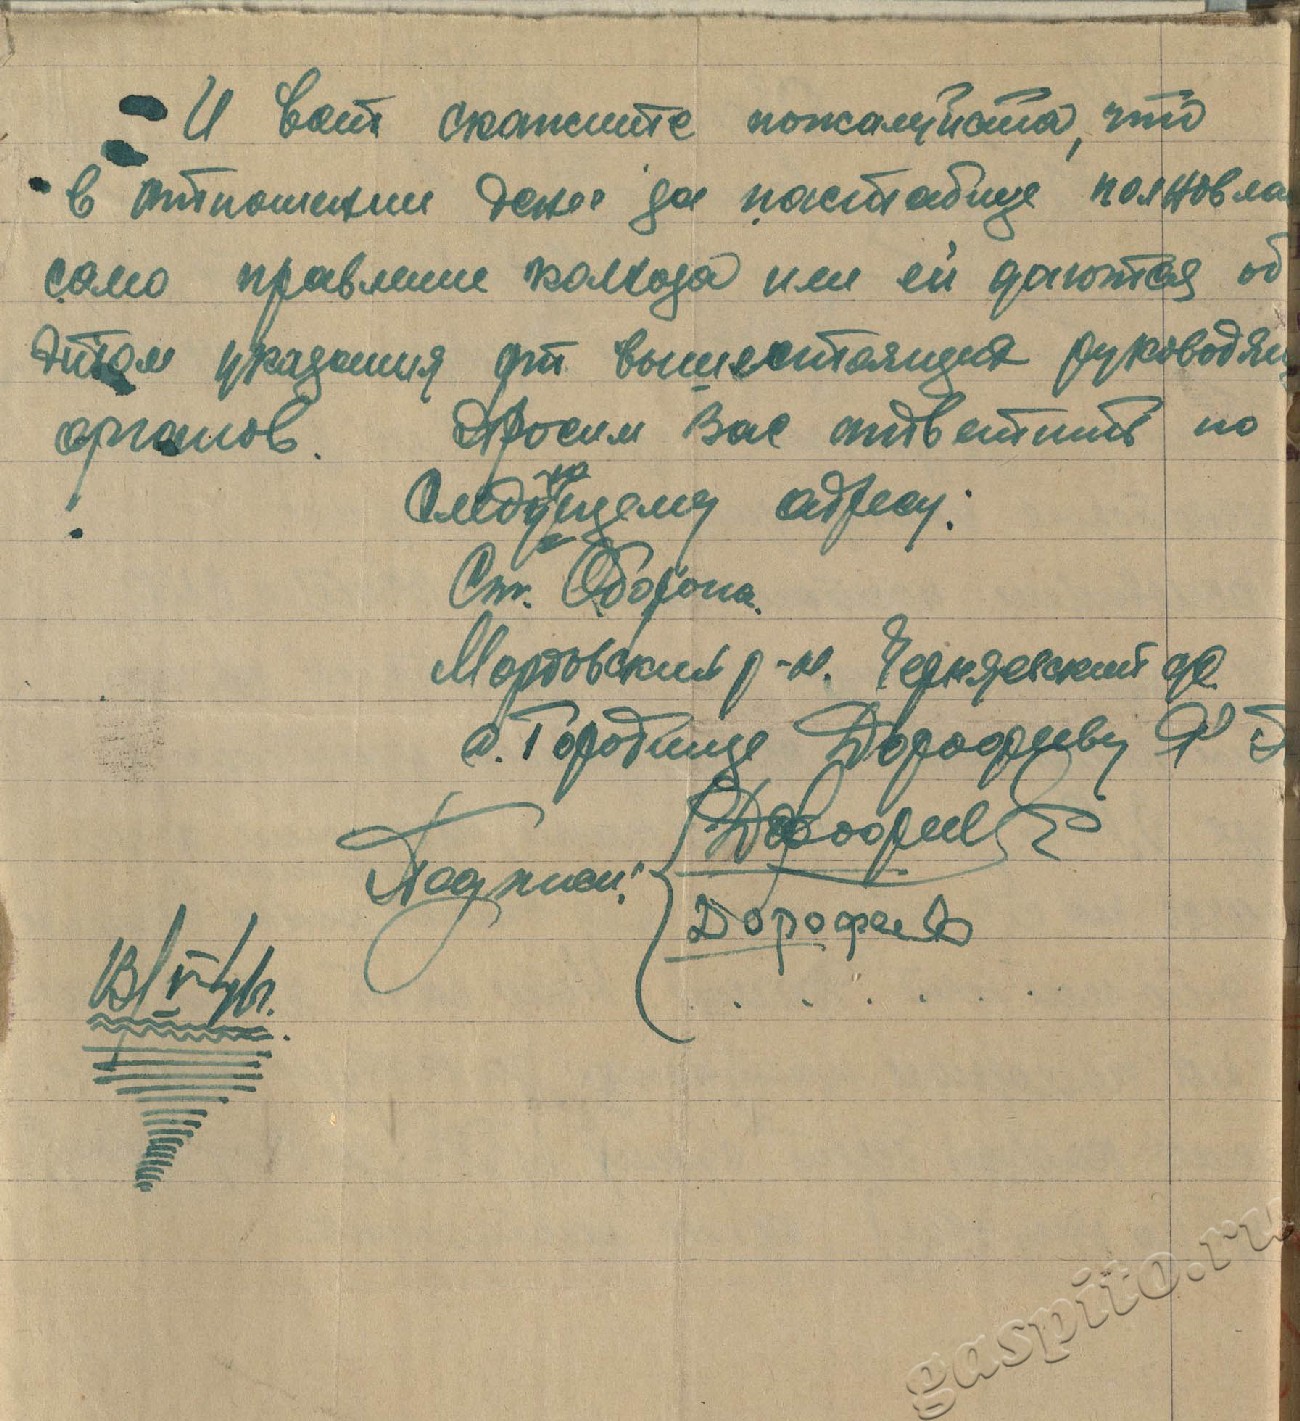 И вот скажите пожалуйста, что
в отношении денег за пастбище полновла
само правление колхоза или ей даются об
этом указания от вышестоящих руководящ
органов. Просим Вас ответить по
следующему на адресу:
Ст. Оборона.
Мордовский р-н. Черняевский
с. Городище Дорофееву
Подписи: Дорофеев
Дорофеев
13/V-46г.
gaspito.ru